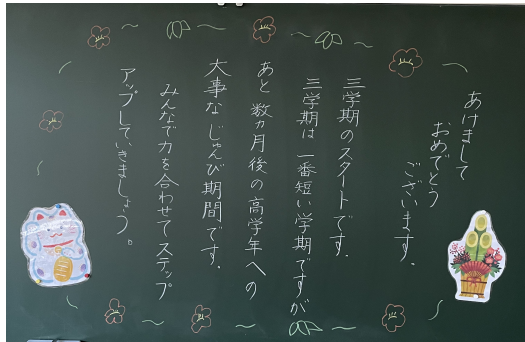 あけまして
おめでとう
ございます.
三学期のスタートです.
三学期は一番短い学期ですが
あと数ヵ月後の高学年への
大事なじゅんび期間です.
みんなで力を合わせてステップ
アップしていきましょう。